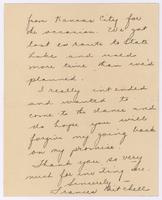 from Kansas City for
the occasion. We got
lost en route to State
Lake and used
more time than we'd
planned.
I really intended
and wanted to
come to the dance and
do hope you will
forgive my going back
on my promise.
Thank you so very
much for inviting me.
Sincerely,
Frances Mitchell